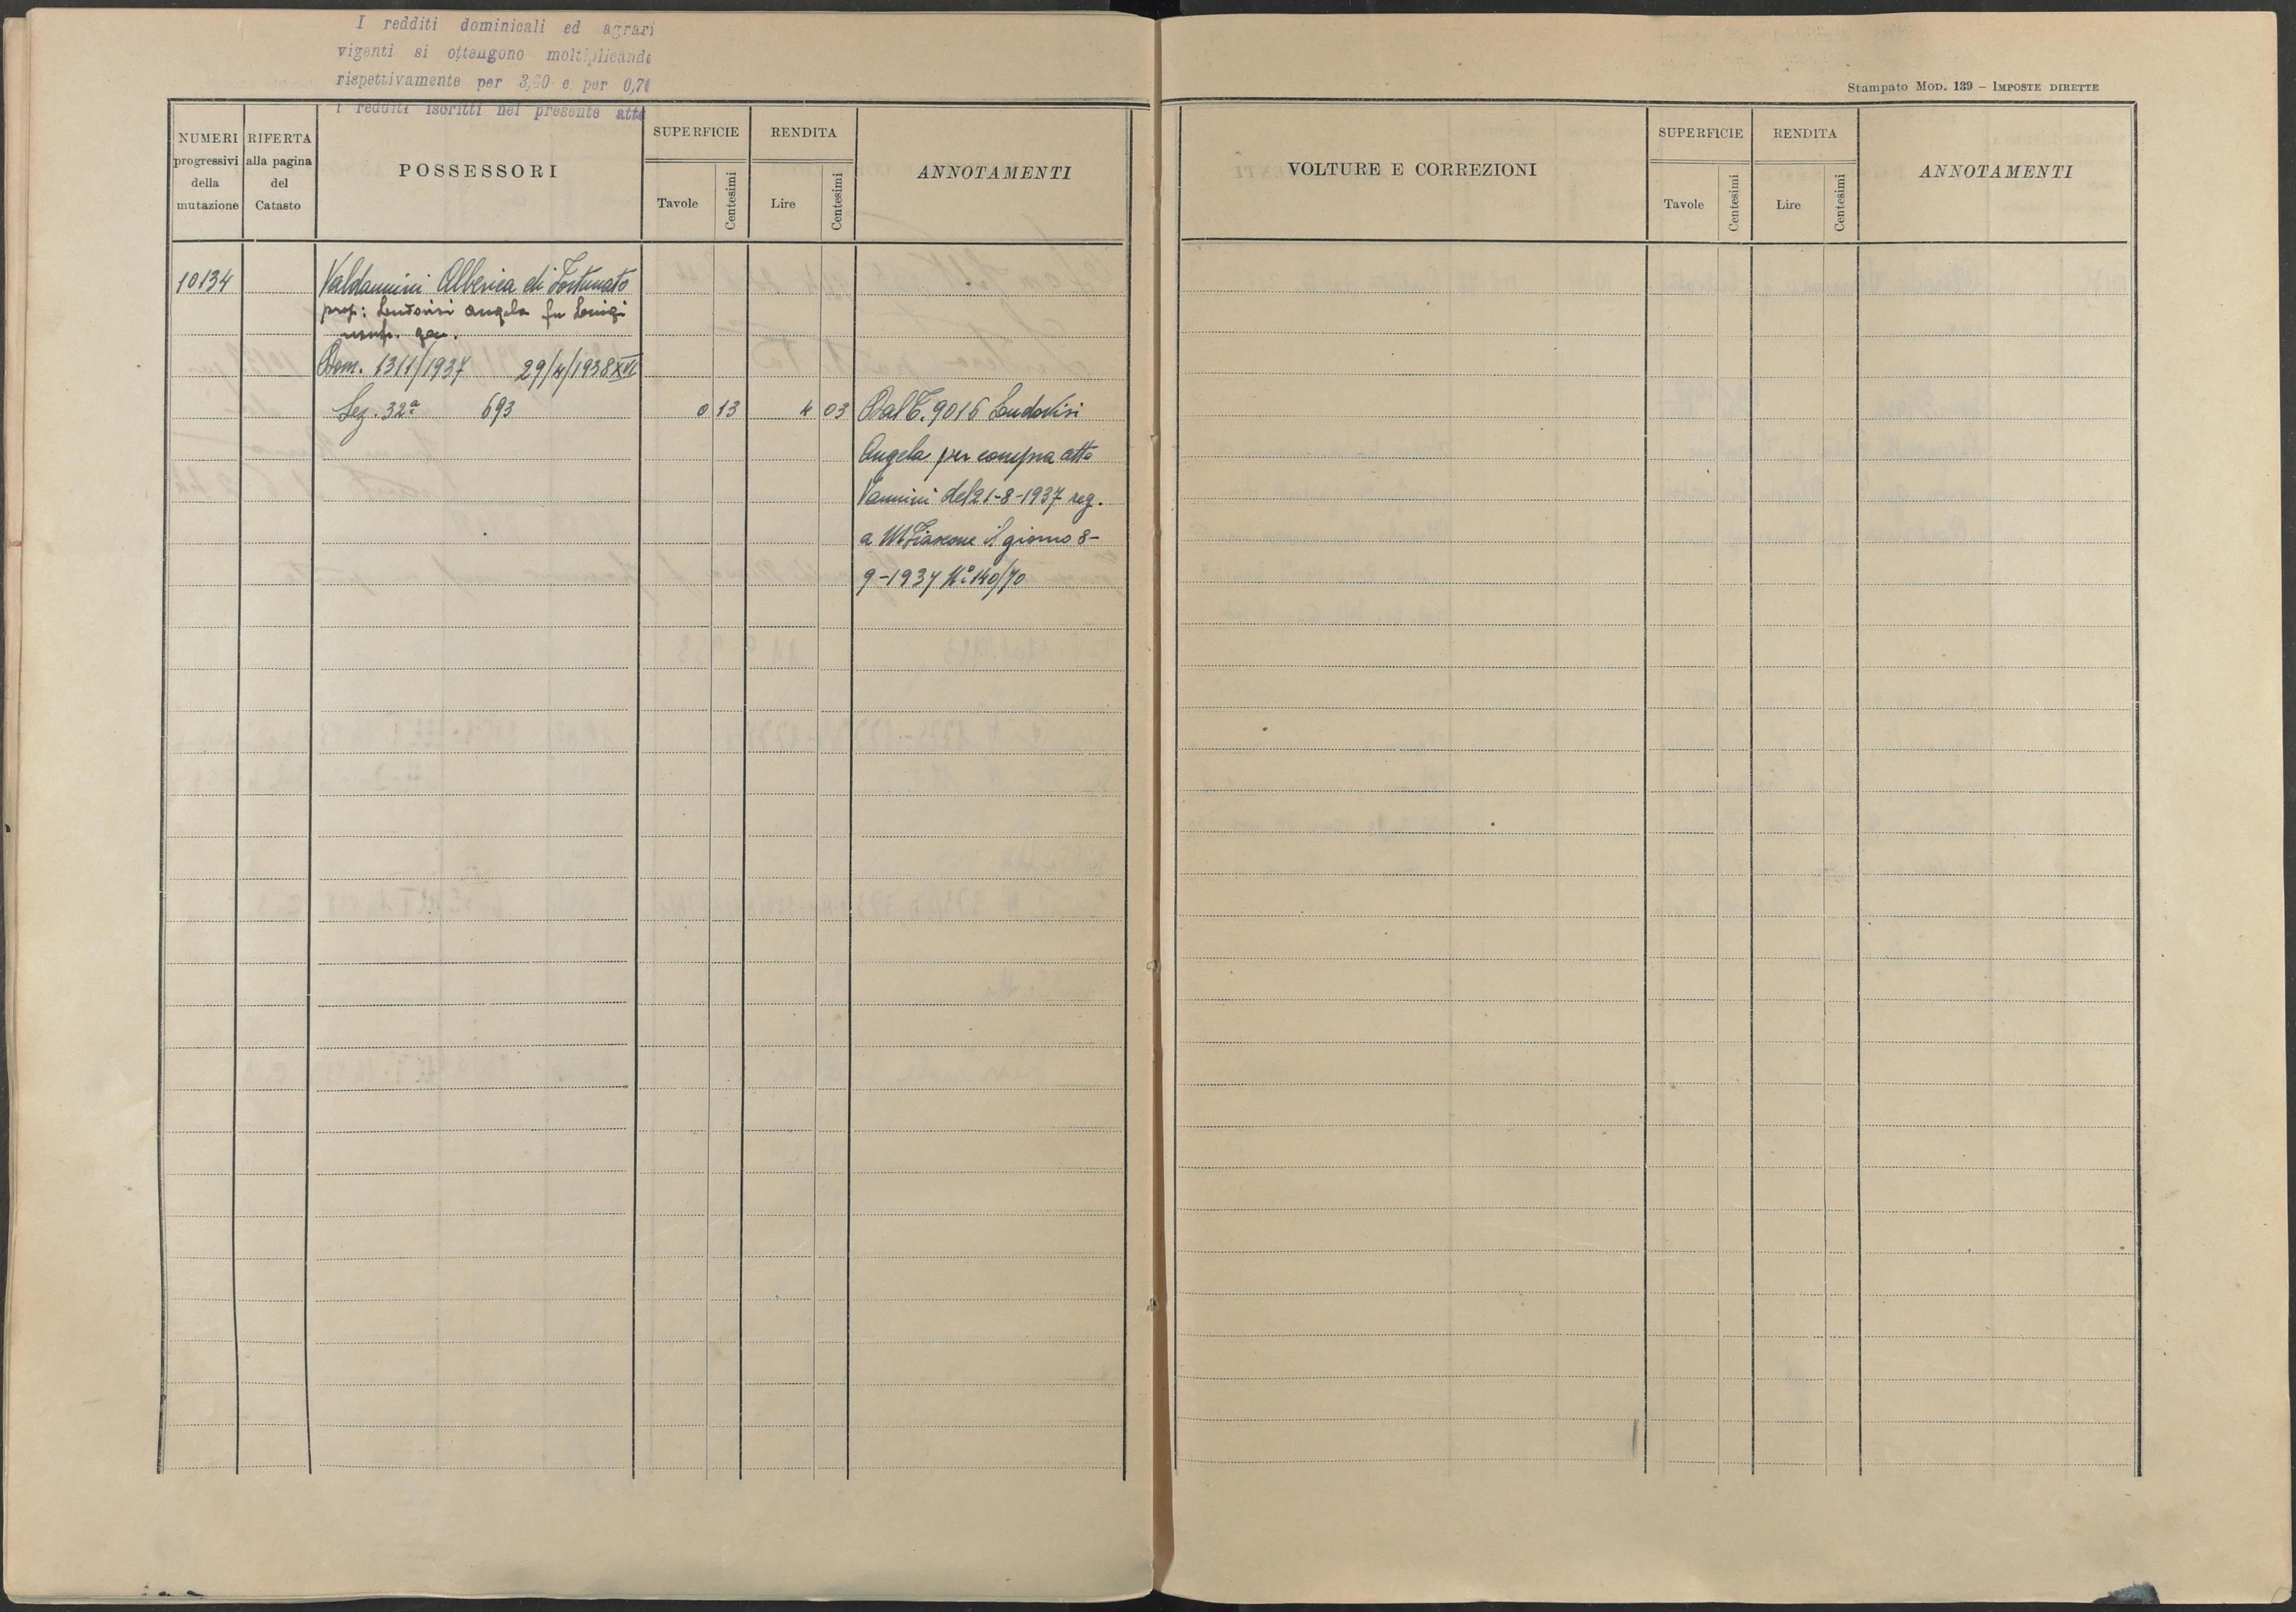 I redditi dominicali ed agrari
vigenti si ottengono moltiplicando
rispettivamente per 3,00 e per 0,70
i redditi iscritti nel presente atto
Stampato Mod. 139 – Imposte dirette
NUMERI progressivi della mutazione
RIFERTA alla pagina del Catasto
POSSESSORI
SUPERFICIE
Tavole
Centesimi
RENDITA
Lire
Centesimi
ANNOTAMENTI
10134
Valdannini Alberica di Fortunato
prop: Ludovisi Angela fu Luigi
usuf. gen.
Dom. 1311/1937 29/4/1938 XVI
Sez. 32ª 693 0 13 4 03
Dal C. 9016 Ludovisi
Angela per compra atto
Vannini del 21-8-1937 reg.
a M.Fiascone il giorno 8-
9-1937 Nº 140/70
VOLTURE E CORREZIONI
SUPERFICIE
Tavole
Centesimi
RENDITA
Lire
Centesimi
ANNOTAMENTI